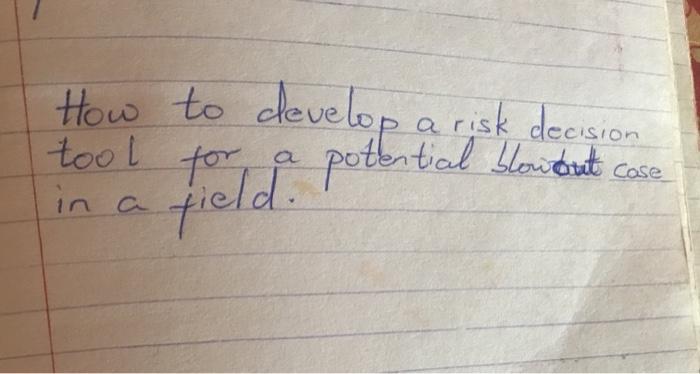 How to develop a risk decision
tool for a potential blowout case
in a field.